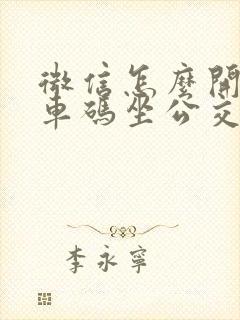 微信怎麼開
車碼坐公交
李永寧